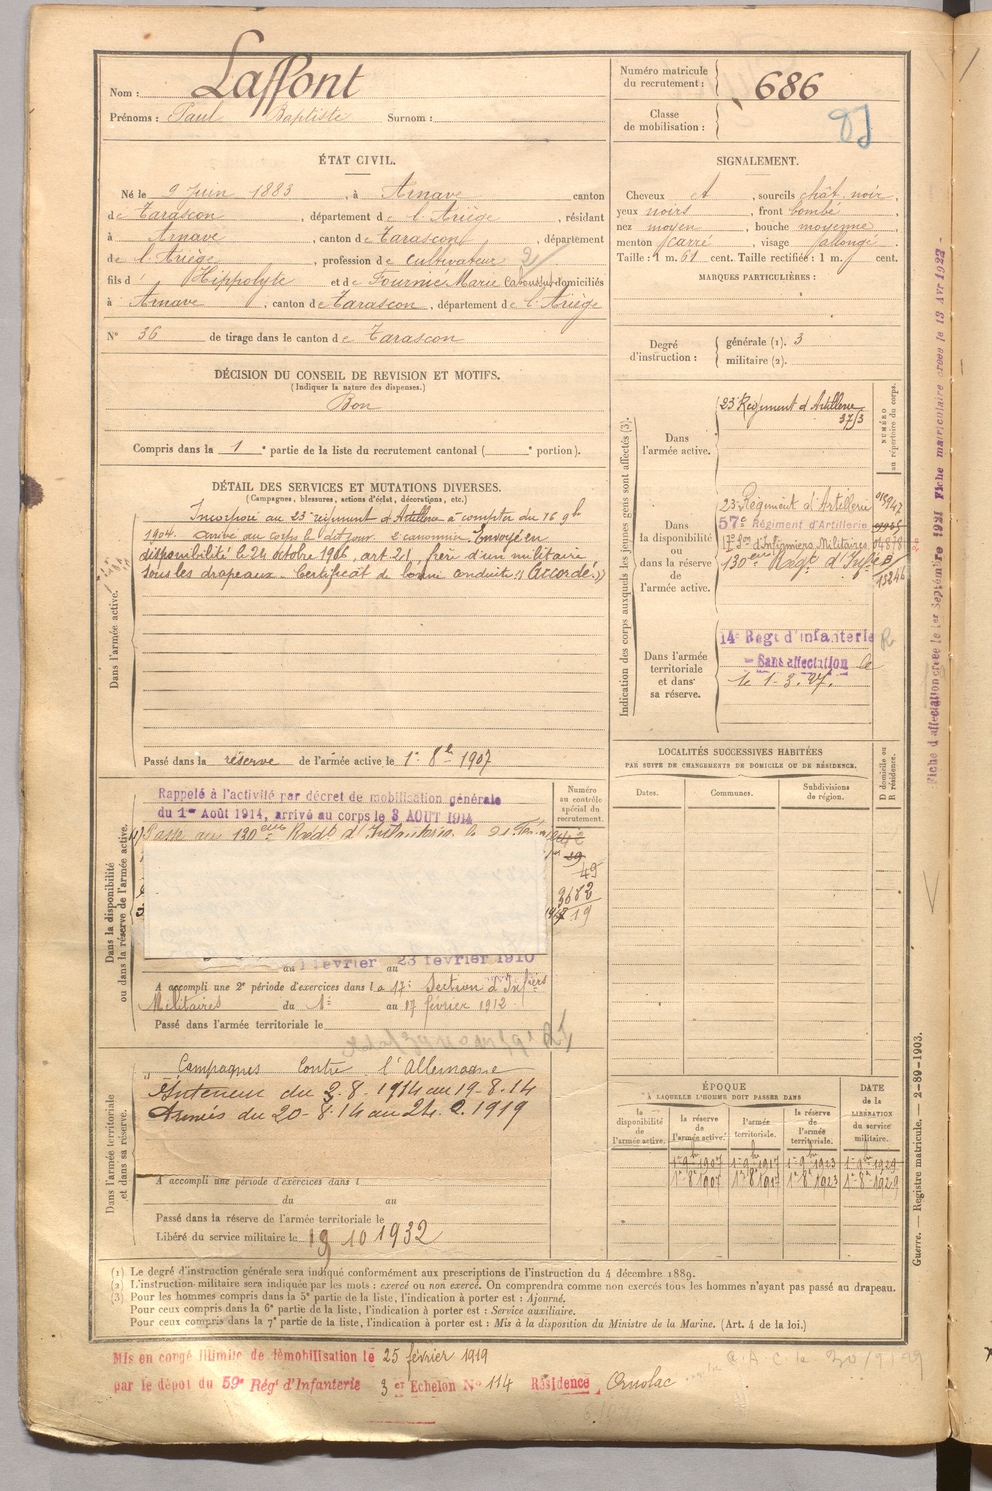 Nom : Laffont
Prénoms : Paul Baptiste Surnom :
Numéro matricule du recrutement : 686
Classe de mobilisation :
ÉTAT CIVIL.
Né le 9 Juin 1883, à Arnave canton
de Tarascon, département de l'Ariège, résidant
à Arnave, canton de Tarascon, département
de l'Ariège, profession de cultivateur 2
fils d' Hippolyte et de Fournié Marie domiciliés
à Arnave, canton de Tarascon, département de l'Ariège
N° 36 de tirage dans le canton de Tarascon
SIGNALEMENT.
Cheveux et, sourcils chât. noir,
yeux noirs, front bombé,
nez moyen, bouche moyenne,
menton carré, visage allongé.
Taille : 1 m. 61 cent. Taille rectifiée : 1 m. cent.
MARQUES PARTICULIÈRES :
Degré d'instruction : générale (1). 3
militaire (2).
DÉCISION DU CONSEIL DE REVISION ET MOTIFS.
(Indiquer la nature des dispenses.)
Bon
Compris dans la 1e partie de la liste du recrutement cantonal ( e portion).
DÉTAIL DES SERVICES ET MUTATIONS DIVERSES.
(Campagnes, blessures, actions d'éclat, décorations, etc.)
Dans l'armée active.
Incorporé au 23e régiment d'Artillerie à compter du 16 9bre
1904. Arrivé au corps le dit jour. 2e canonnier. Envoyé en
disponibilité le 24 octobre 1906, art. 21, frère d'un militaire
sous les drapeaux. Certificat de bonne conduite "Accordé"
Passé dans la réserve de l'armée active le 1er 8bre 1907
Indication des corps auxquels les jeunes gens sont affectés (3).
NUMÉRO au répertoire du corps.
Dans l'armée active.
23e Régiment d'Artillerie
37/3
Dans la disponibilité ou dans la réserve de l'armée active.
23e Régiment d'Artillerie
57e Régiment d'Artillerie
17e Son d'Infirmiers Militaires
130eme Régt d'Infie
Dans l'armée territoriale et dans sa réserve.
14e Régt d'infanterie
Sans affectation le
le 1-3.27.
Dans la disponibilité ou dans la réserve de l'armée active.
Rappelé à l'activité par décret de mobilisation générale
du 1er Août 1914, arrivé au corps le 3 AOUT 1914
Numéro au contrôle spécial du recrutement.
49
3682
19
au février au 23 février 1910
A accompli une 2e période d'exercices dans la 17e Section d'Infiers
Militaires du 1er au 17 février 1912
Passé dans l'armée territoriale le
Dans l'armée territoriale et dans sa réserve.
Campagnes Contre l'Allemagne
Intérieur du 3.8.1914 au 19-8.14
Armées du 20-8.14 au 24.2.1919
A accompli une période d'exercices dans l
du au
Passé dans la réserve de l'armée territoriale le
Libéré du service militaire le 19 10 1932
LOCALITÉS SUCCESSIVES HABITÉES
PAR SUITE DE CHANGEMENTS DE DOMICILE OU DE RÉSIDENCE.
Dates. Communes. Subdivisions de région. D domicile ou R résidence.
ÉPOQUE
À LAQUELLE L'HOMME DOIT PASSER DANS
DATE de la LIBÉRATION du service militaire.
la disponibilité de l'armée active. la réserve de l'armée active. l'armée territoriale. la réserve de l'armée territoriale.
1er 9bre 1907 1er 9bre 1917 1er 9bre 1923 1er 9bre 1929
1er 8bre 1907 1er 8bre 1917 1er 8bre 1923 1er 8bre 1929
(1) Le degré d'instruction générale sera indiqué conformément aux prescriptions de l'instruction du 4 décembre 1889.
(2) L'instruction militaire sera indiquée par les mots : exercé ou non exercé. On comprendra comme non exercés tous les hommes n'ayant pas passé au drapeau.
(3) Pour les hommes compris dans la 5e partie de la liste, l'indication à porter est : Ajourné.
Pour ceux compris dans la 6e partie de la liste, l'indication à porter est : Service auxiliaire.
Pour ceux compris dans la 7e partie de la liste, l'indication à porter est : Mis à la disposition du Ministre de la Marine. (Art. 4 de la loi.)
Mis en congé illimité de démobilisation le 25 février 1919
par le dépôt du 59e Rég' d'Infanterie 3 er Echelon N° 114 Résidence Ornolac
Guerre. — Registre matricule. — 2-89-1903.
Fiche d'affectation créée le 1er Septembre 1921 Fiche matriculaire créée le 13 Avr 1922